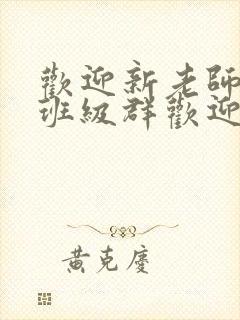 歡迎新老師
班級群歡迎
黃克慶